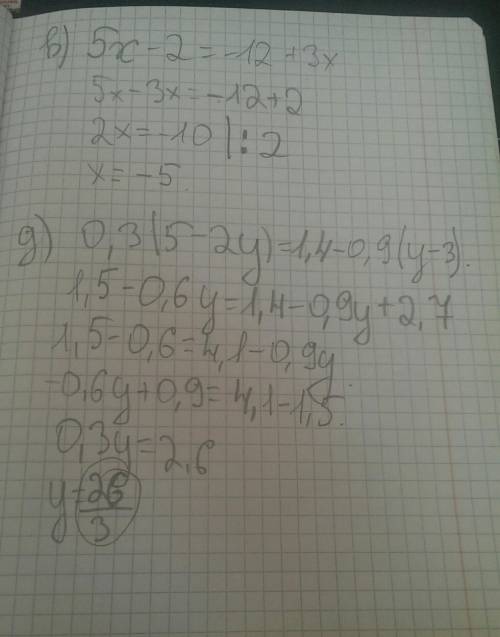 в) 5x - 2 = -12 + 3x
5x - 3x = -12 + 2
2x = -10 | : 2
x = -5.
д) 0,3(5 - 2y) = 1,4 - 0,9(y - 3).
1,5 - 0,6y = 1,4 - 0,9y + 2,7
1,5 - 0,6 = 4,1 - 0,9y
-0,6y + 0,9 = 4,1 - 1,5.
0,3y = 2,6
y = 26/3